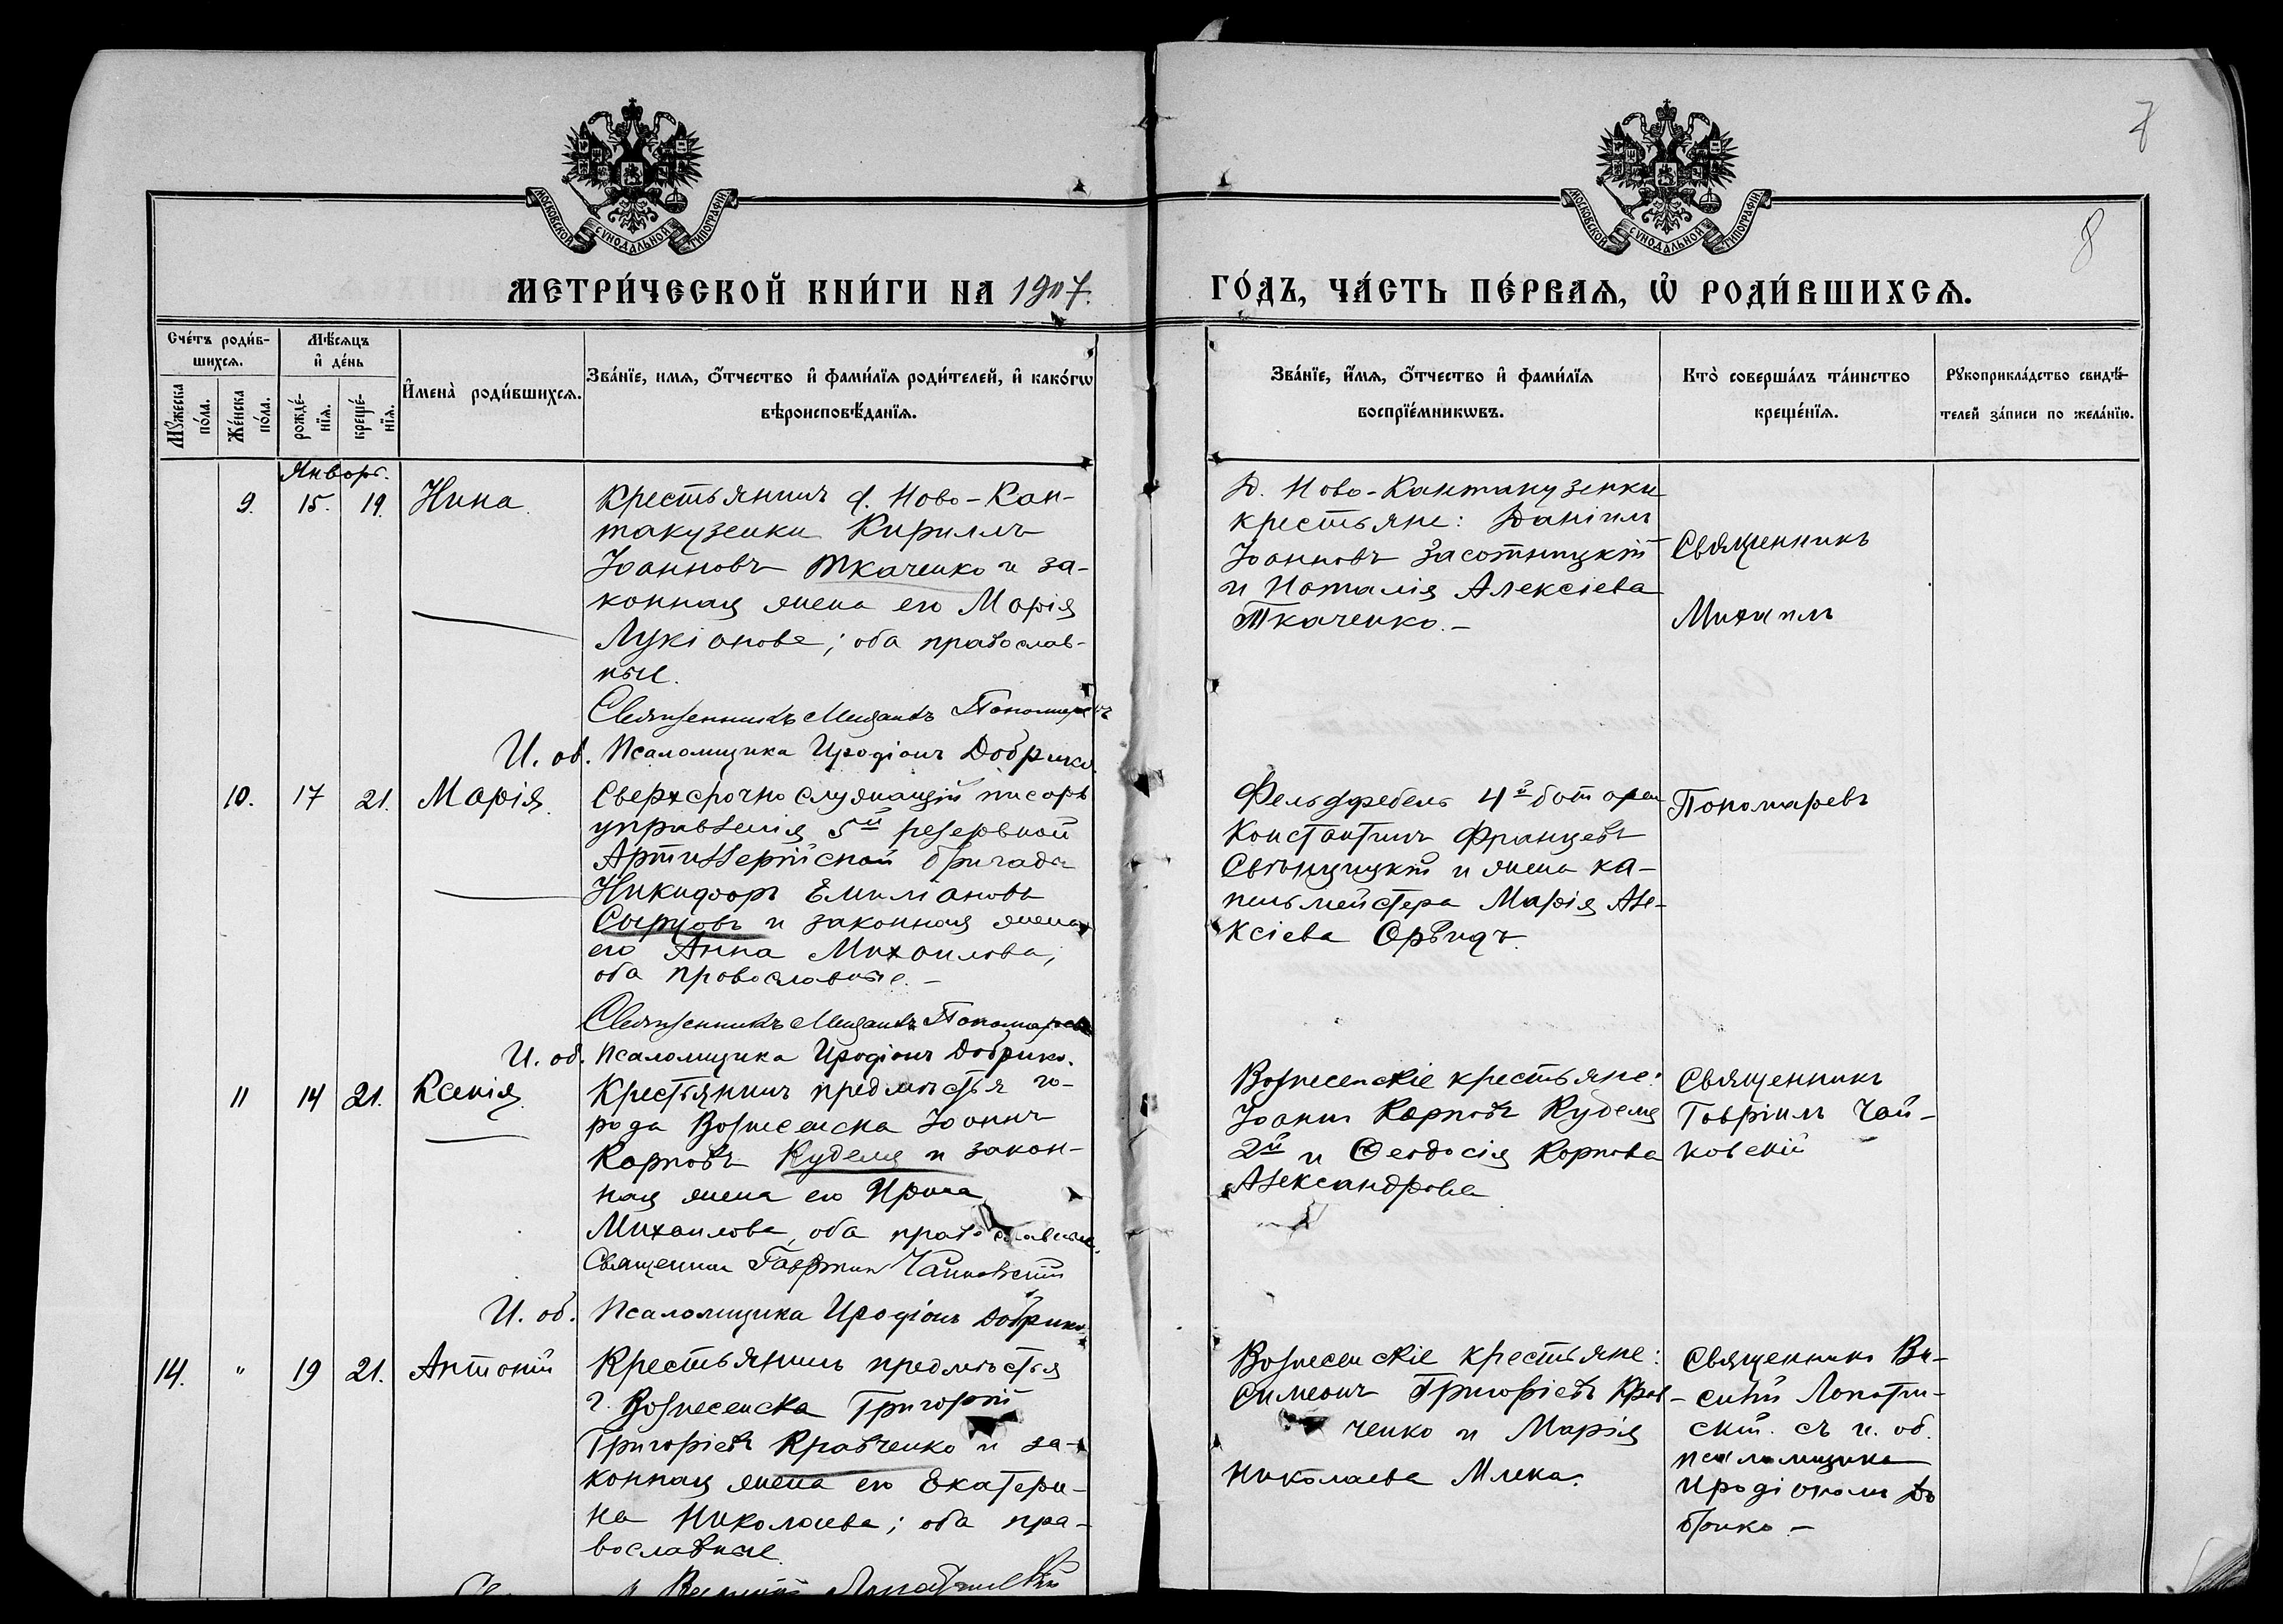 7
8
МОСКОВСКОЙ СѴНОДАЛЬНОЙ ТИПОГРАФІИ
МОСКОВСКОЙ СѴНОДАЛЬНОЙ ТИПОГРАФІИ
МЕТРИ́ЧЕСКОЙ КНИ́ГИ НА 1907.
ГО́ДЪ, ЧА́СТЬ ПЕ́РВАЯ, Ѡ҆ РОДИ́ВШИХСЯ.
Сче́тъ роди́в-
шихся.
Мꙋ́жеска
по́ла.
Же́нска
по́ла.
Мѣ́сяцъ
и҆ де́нь
рожде́-
нїя.
креще́-
нїя.
И҆мена̀ роди́вшихся.
Зва́нїе, имя, ѻ҆́тчество и҆ фами́лїя роди́телей, и҆ како́гѡ
вѣроисповѣ́данїя.
Зва́нїе, и҆́мя, ѻ҆́тчество и҆ фами́лїя
воспрїе́мникѡвъ.
Кто̀ соверша́лъ та́инство
креще́нїя.
Рꙋкоприкла́дство свидѣ́-
телей за́писи по жела́нїю.
Январь.
9. 15. 19. Нина
Крестьянинъ д. Ново-Кан-
такузенки Кириллъ
Іоанновъ Ткаченко и за-
конная жена его Марія
Лукіанова; оба православ-
ные.
Священникъ Михаилъ Пономаревъ
И. об. Псаломщика Иродіонъ Добрико.
Д. Ново-Кантакузенки
крестьяне: Даніилъ
Іоанновъ Засотницкій
и Наталія Алексіева
Ткаченко. –
Священникъ
Михаилъ
10. 17 21. Марія.
Сверхсрочно служащій писарь
управленія 5й резервной
Артиллерійской бригады
Никифоръ Емиліановъ
Сырцовъ и законная жена
его Анна Михаилова;
оба православные. –
Священникъ Михаилъ Пономаревъ
И. об. Псаломщика Иродіонъ Добрико.
Фельдфебель 4й батареи
Константинъ Францевъ
Свѣнцицкій и жена ка-
пельмейстера Марія Але-
ксіева Орвидъ.
Пономаревъ
11 14 21. Ксенія.
Крестьянинъ предмѣстья го-
рода Вознесенска Іоаннъ
Карповъ Куделя и закон-
ная жена его Ирина
Михаилова, оба православные.
Священникъ Гавріилъ Чайковскій
И. об. Псаломщика Иродіонъ Добрико
Вознесенскіе крестьяне:
Іоаннъ Карповъ Куделя
2й и Ѳеодосія Карпова
Александрова
Священникъ
Гавріилъ Чай-
ковскій
14. " 19 21. Антоній
Крестьянинъ предмѣстья
г. Вознесенска Григорій
Григоріевъ Кравченко и за-
конная жена его Екатери-
на Николаева; оба пра-
вославные.
Вознесенскіе крестьяне:
Симеонъ Григорієвъ Крав-
ченко и Марія
Николаева Млека.
Священникъ Ва-
силій Лопатин-
скій. съ и. об.
псаломщика
Иродіономъ До
брико –